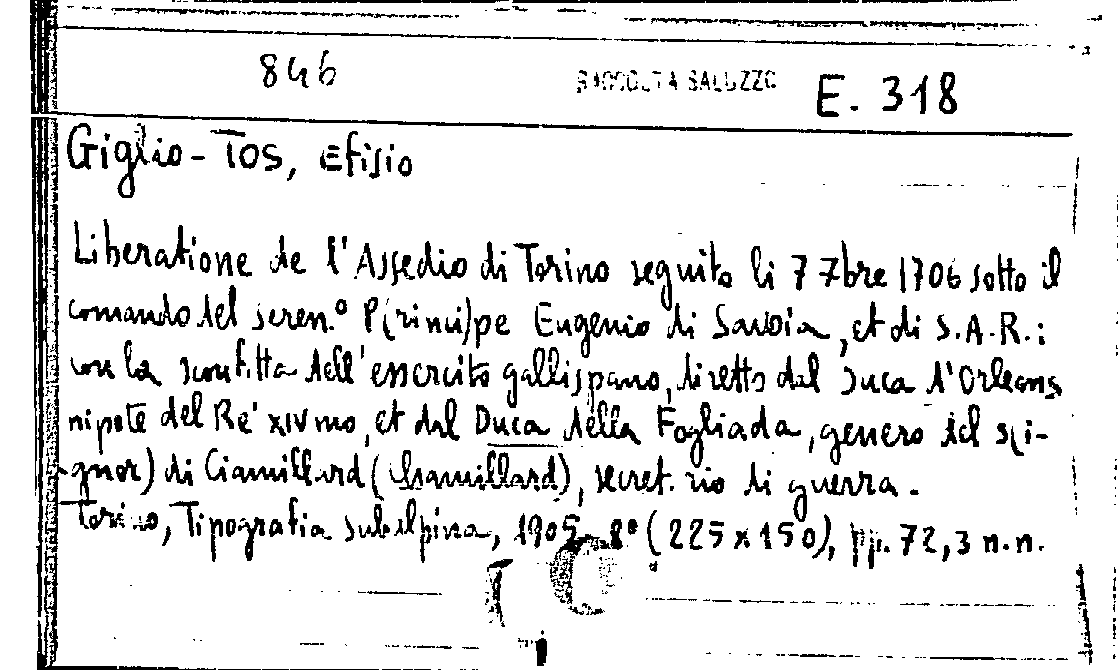 846 RACCOLTA SALUZZO E. 318
Giglio-Tos, Efisio
Liberatione de l'Assedio di Torino seguito li 7 7bre 1706 sotto il
comando del seren.º P(rinci)pe Eugenio di Savoia, et di S.A.R.:
con la sconfitta dell'essercito gallispano, diretto dal Duca d'Orleans
nipote del Re XIVmo, et dal Duca della Fogliada, genero del s(i-
gnor) di Ciamillard (Chamillard), secret.rio di guerra.
Torino, Tipografia subalpina, 1905, 8º (225x150), pp. 72, 3 n.n.